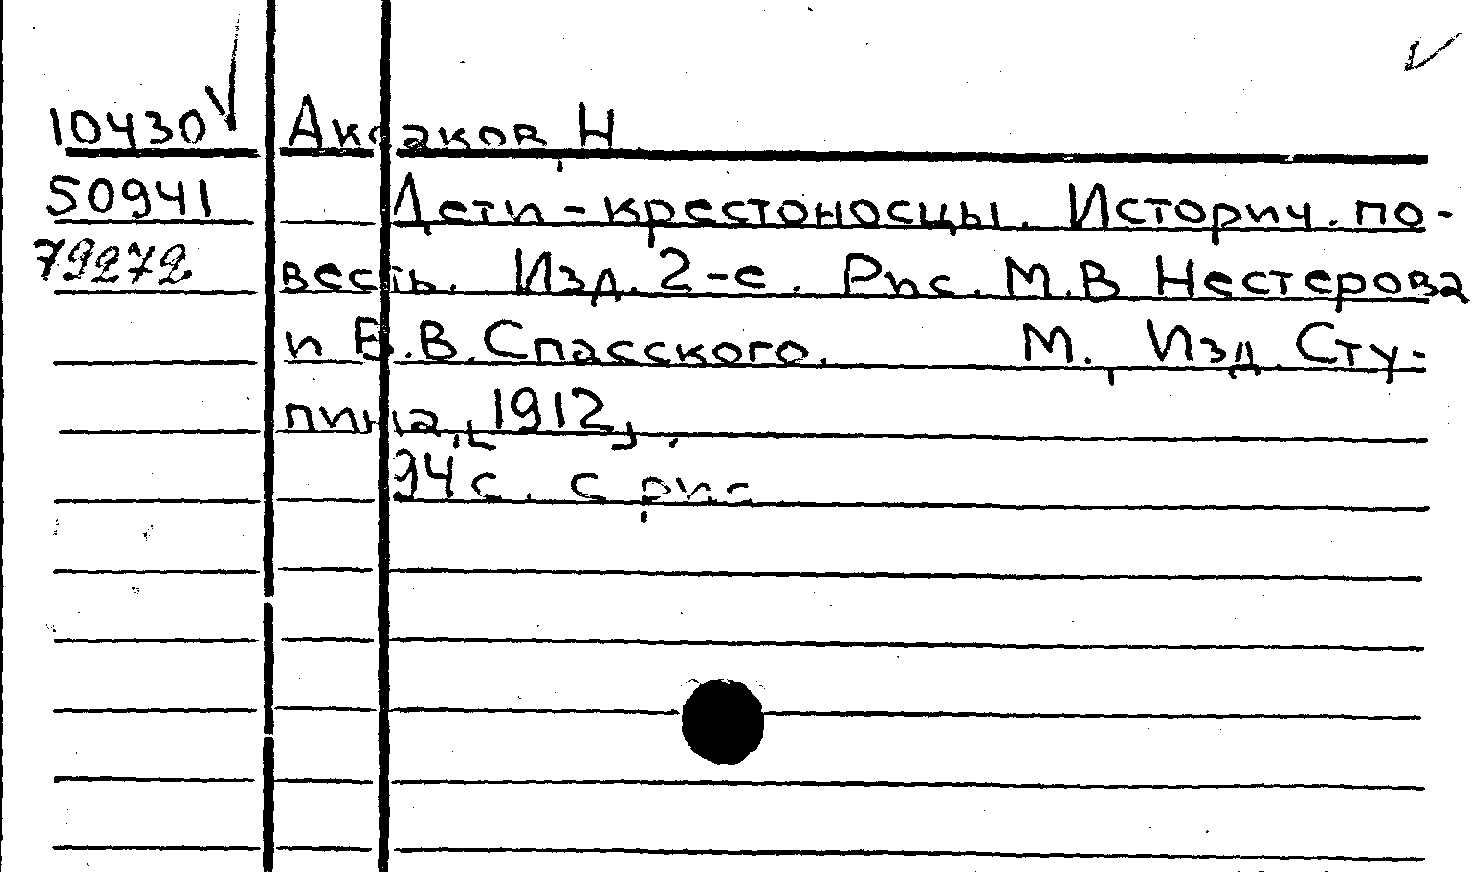 10430 Аксаков, Н
50941 Дети-крестоносцы. Историч. по-
79272 весть. Изд. 2-е. Рис. М.В Нестерова
и В.В. Спасского. М., Изд. Сту-
пина, [1912].
94 с. с рис